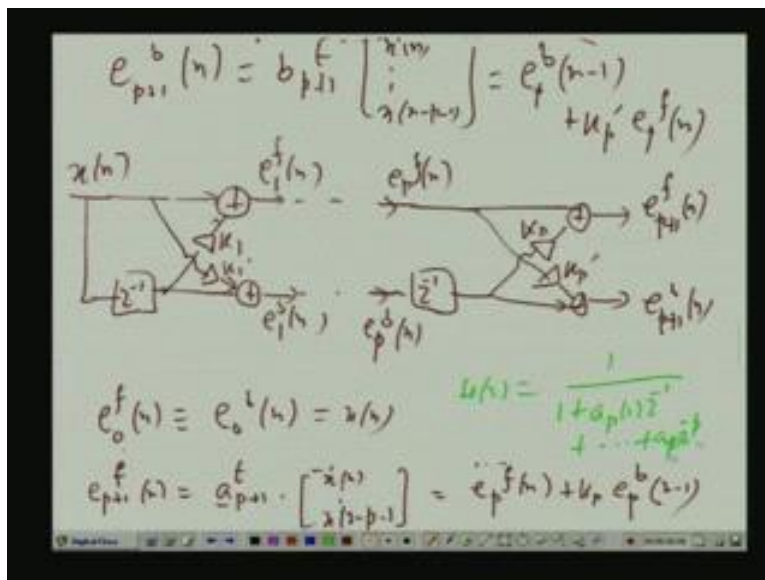 e_{p+1}^b(n) = b_{p+1}^t [x(n) ⋮ x(n-p-1)] = e_p^b(n-1)
+ k_p' e_p^f(n)
x(n) + e_1^f(n) - - e_p^f(n) + e_{p+1}^f(n)
k_1 k_1' k_p k_p'
z^{-1} + e_1^b(n) e_p^b(n) z^{-1} e_{p+1}^b(n)
H(z) = 1 / (1 + a_p(1) z^{-1}
+ ⋯ +
e_0^f(n) ≡ e_0^b(n) = x(n)
e_{p+1}^f(n) = a_{p+1}^t · [x(n) x(n-p-1)] = e_p^f(n) + k_p e_p^b(n-1)